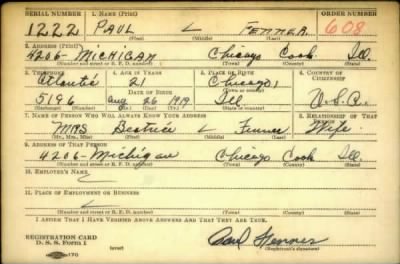 SERIAL NUMBER 1. NAME (Print) ORDER NUMBER
1222 PAUL L FENNER 608
(First) (Middle) (Last)
2. ADDRESS (Print)
4206-MICHIGAN Chicago Cook Ill.
(Number and street or R. F. D. number) (Town) (County) (State)
3. TELEPHONE 4. AGE IN YEARS 5. PLACE OF BIRTH 6. COUNTRY OF CITIZENSHIP
Atlantic 21 Chicago,
DATE OF BIRTH
5196 Aug 26 1919 Ill U.S.A.
7. NAME OF PERSON WHO WILL ALWAYS KNOW YOUR ADDRESS 8. RELATIONSHIP OF THAT PERSON
MRS Beatrice L Fenner Wife
(Mr., Mrs., Miss) (First) (Middle) (Last)
9. ADDRESS OF THAT PERSON
4206-Michigan Chicago Cook Ill.
(Number and street or R. F. D. number) (Town) (County) (State)
10. EMPLOYER'S NAME
11. PLACE OF EMPLOYMENT OR BUSINESS
(Number and street or R. F. D. number) (Town) (County) (State)
I AFFIRM THAT I HAVE VERIFIED ABOVE ANSWERS AND THAT THEY ARE TRUE.
REGISTRATION CARD
D. S. S. Form 1 (over) Paul Fenner
(Registrant's signature)